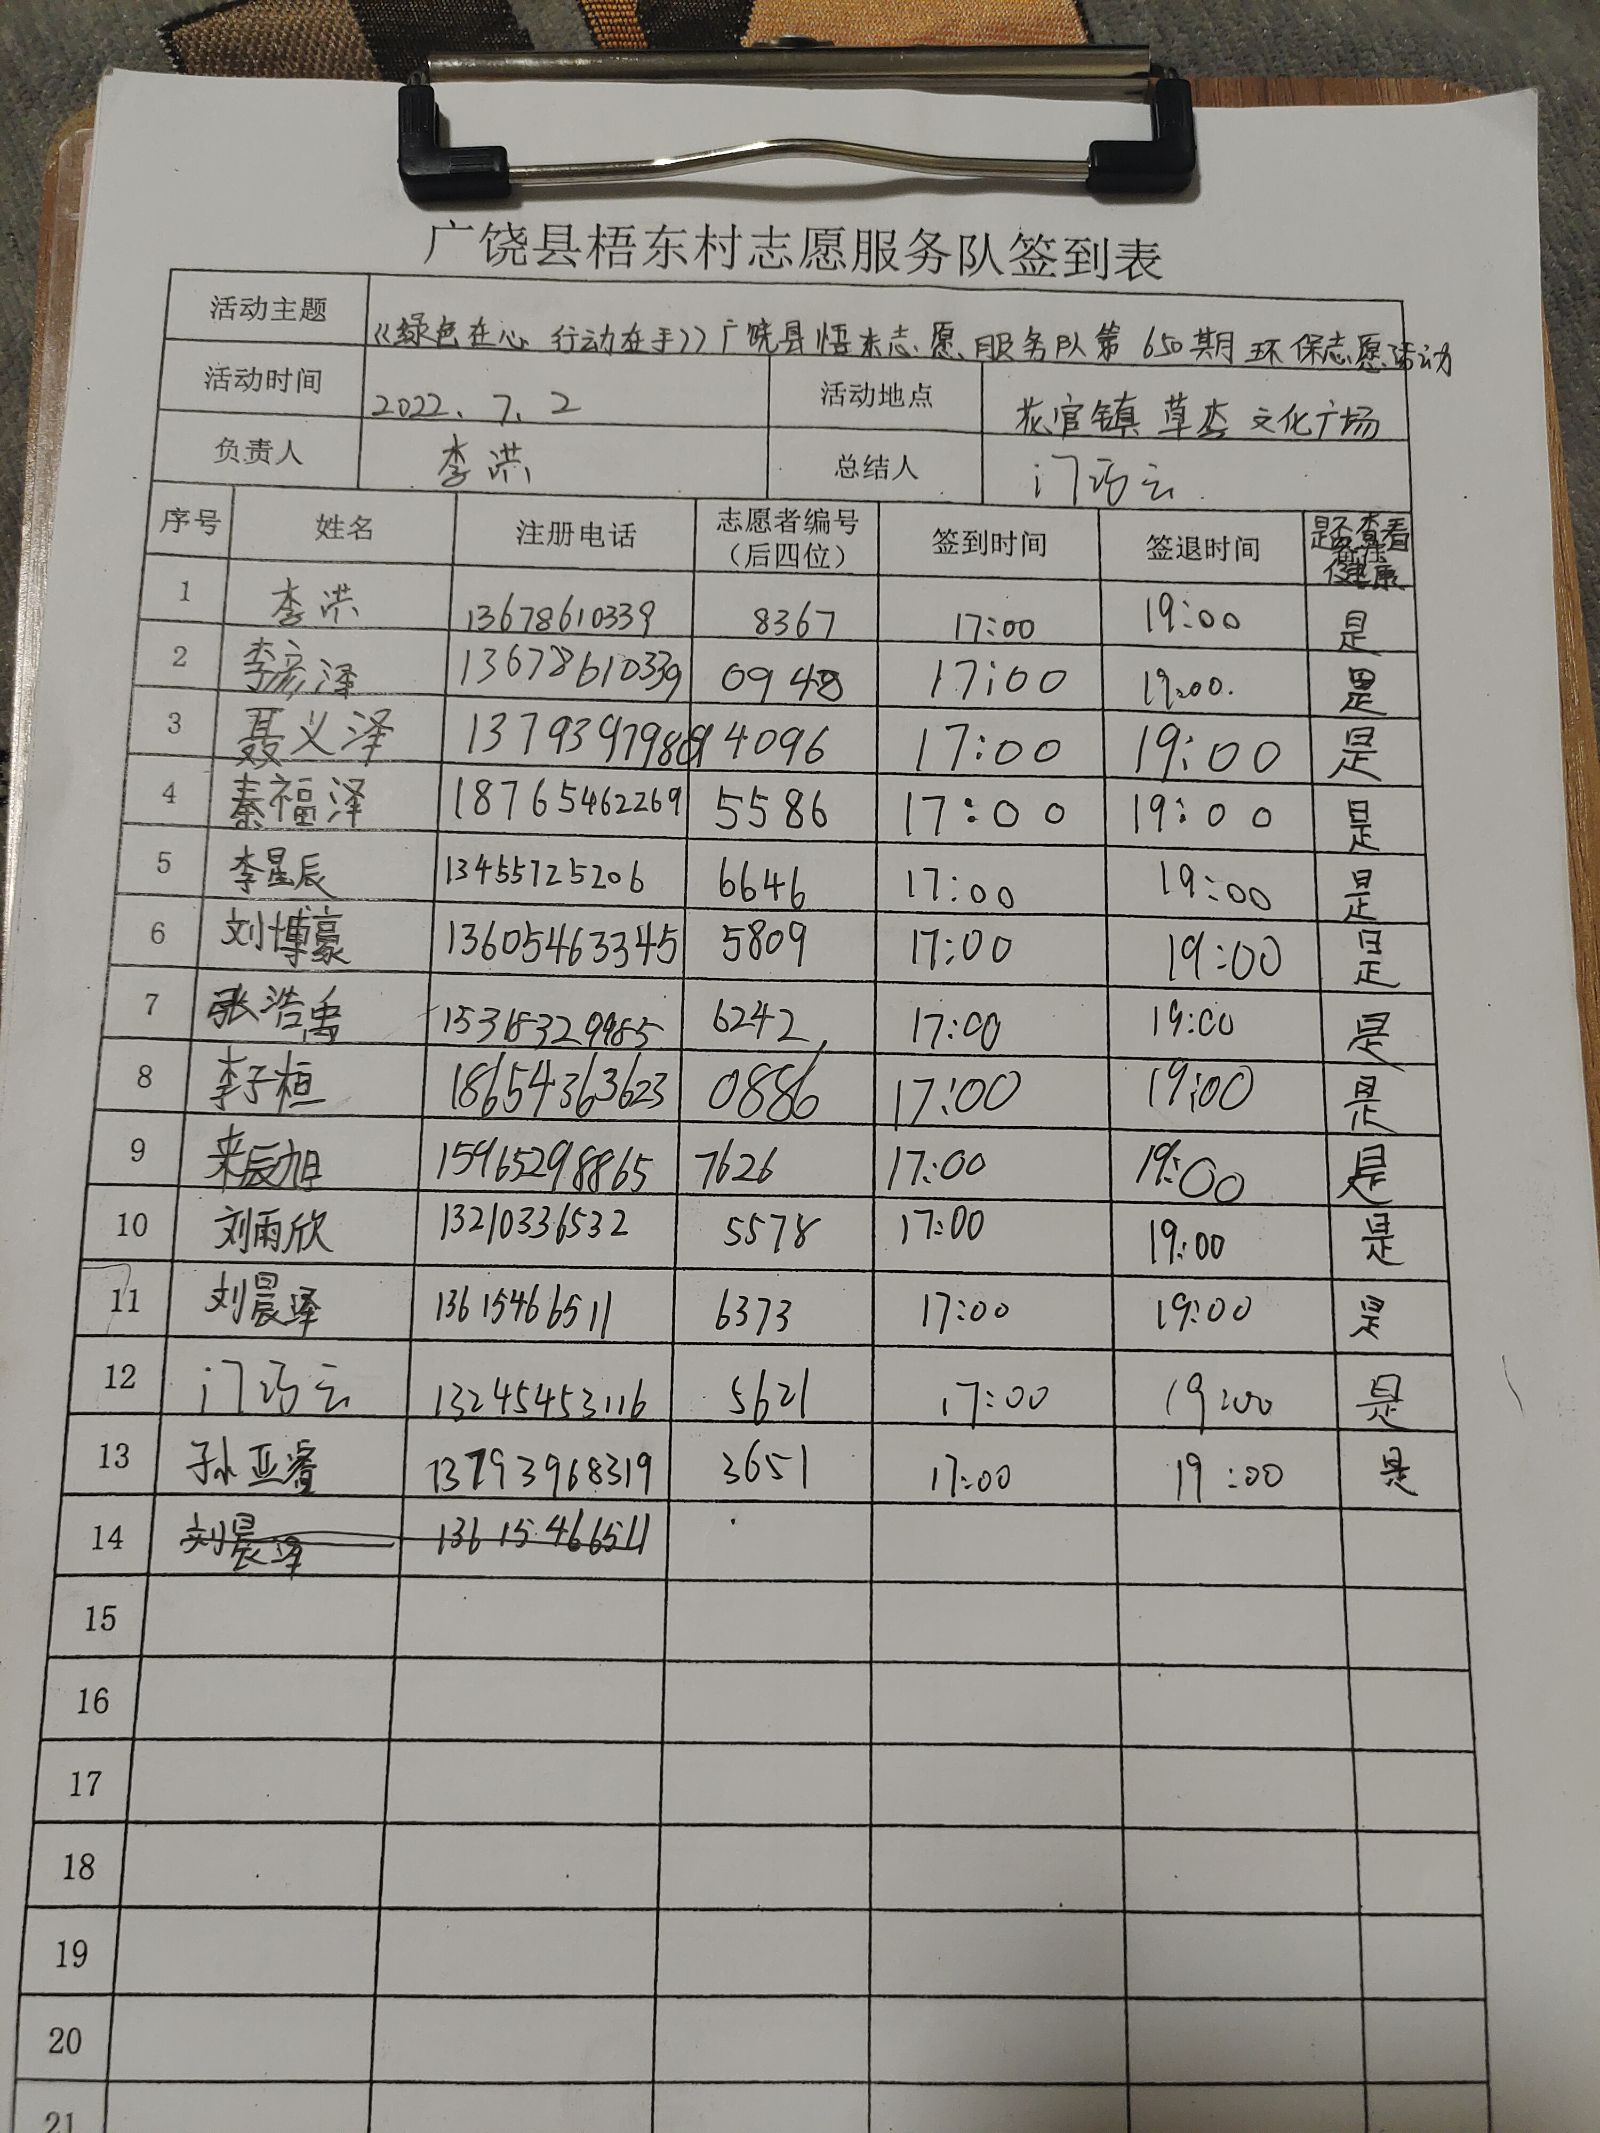 广饶县梧东村志愿服务队签到表
活动主题 《绿色在心 行动在手》广饶县悟东志愿服务队第650期环保志愿活动
活动时间 2022、7、2 活动地点 花官镇草李文化广场
负责人 李洪 总结人 门巧云
序号 姓名 注册电话 志愿者编号（后四位） 签到时间 签退时间 是否查看 健康
1 李洪 13678610339 8367 17:00 19:00 是
2 李彦泽 13678610339 0948 17:00 19:00. 是
3 聂义泽 13793979809 4096 17:00 19:00 是
4 秦福泽 18765462269 5586 17:00 19:00 是
5 李星辰 13455725206 6646 17:00 19:00 是
6 刘博豪 13605463345 5809 17:00 19:00 是
7 张浩禹 6242 17:00 19:00 是
8 李子桓 18654363623 0886 17:00 19:00 是
9 来辰旭 15965298865 7626 17:00 19:00 是
10 刘雨欣 13210336532 5578 17:00 19:00 是
11 刘晨泽 13615466511 6373 17:00 19:00 是
12 门巧云 13245453116 5621 17:00 19:00 是
13 孙亚睿 13793968319 3651 17:00 19:00 是
14 刘晨泽 13615466511
15
16
17
18
19
20
21